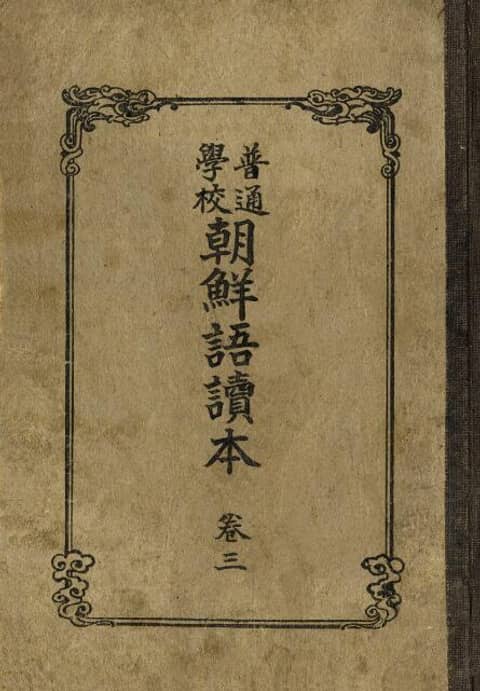 普通
學校
朝鮮語讀本
卷三